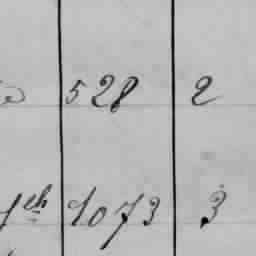 528 2
1073 3